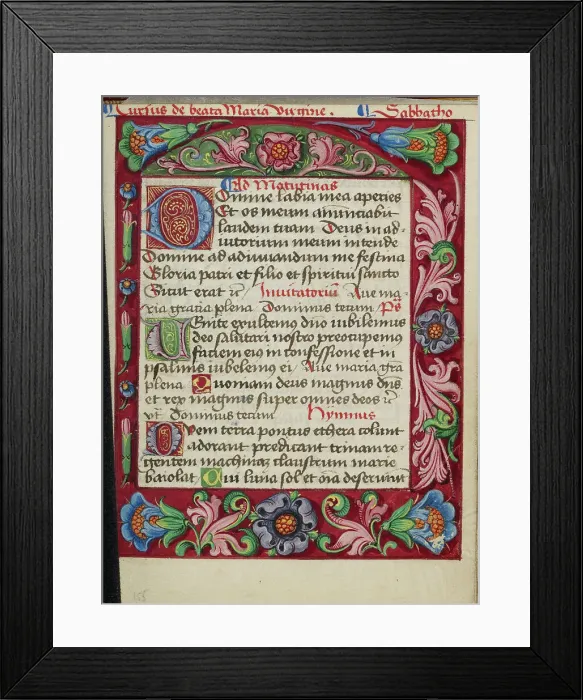 Cursus de beata Maria Virgine. Sabbatho
Ad Matutinas
Domine labia mea aperies
Et os meum annunciabit
laudem tuam Deus in ad-
iutorium meum intende
Domine ad adiuuandum me festina
Gloria patri et filio et spiritui sancto
Sicut erat Inuitatorium Aue ma-
ria gratia plena Dominus tecum Ps
Uenite exultemus dno iubilemus
deo salutari nostro preocupemus
faciem eius in confessione et in
psalmis iubelemus ei Aue maria gra
plena Quoniam deus magnus dns
et rex magnus super omnes deos
Dominus tecum Hymnus
Quem terra pontus ethera colunt
adorant predicant trinam re-
gentem machinam claustrum marie
baiolat Cui luna sol et oia deseruiut
155